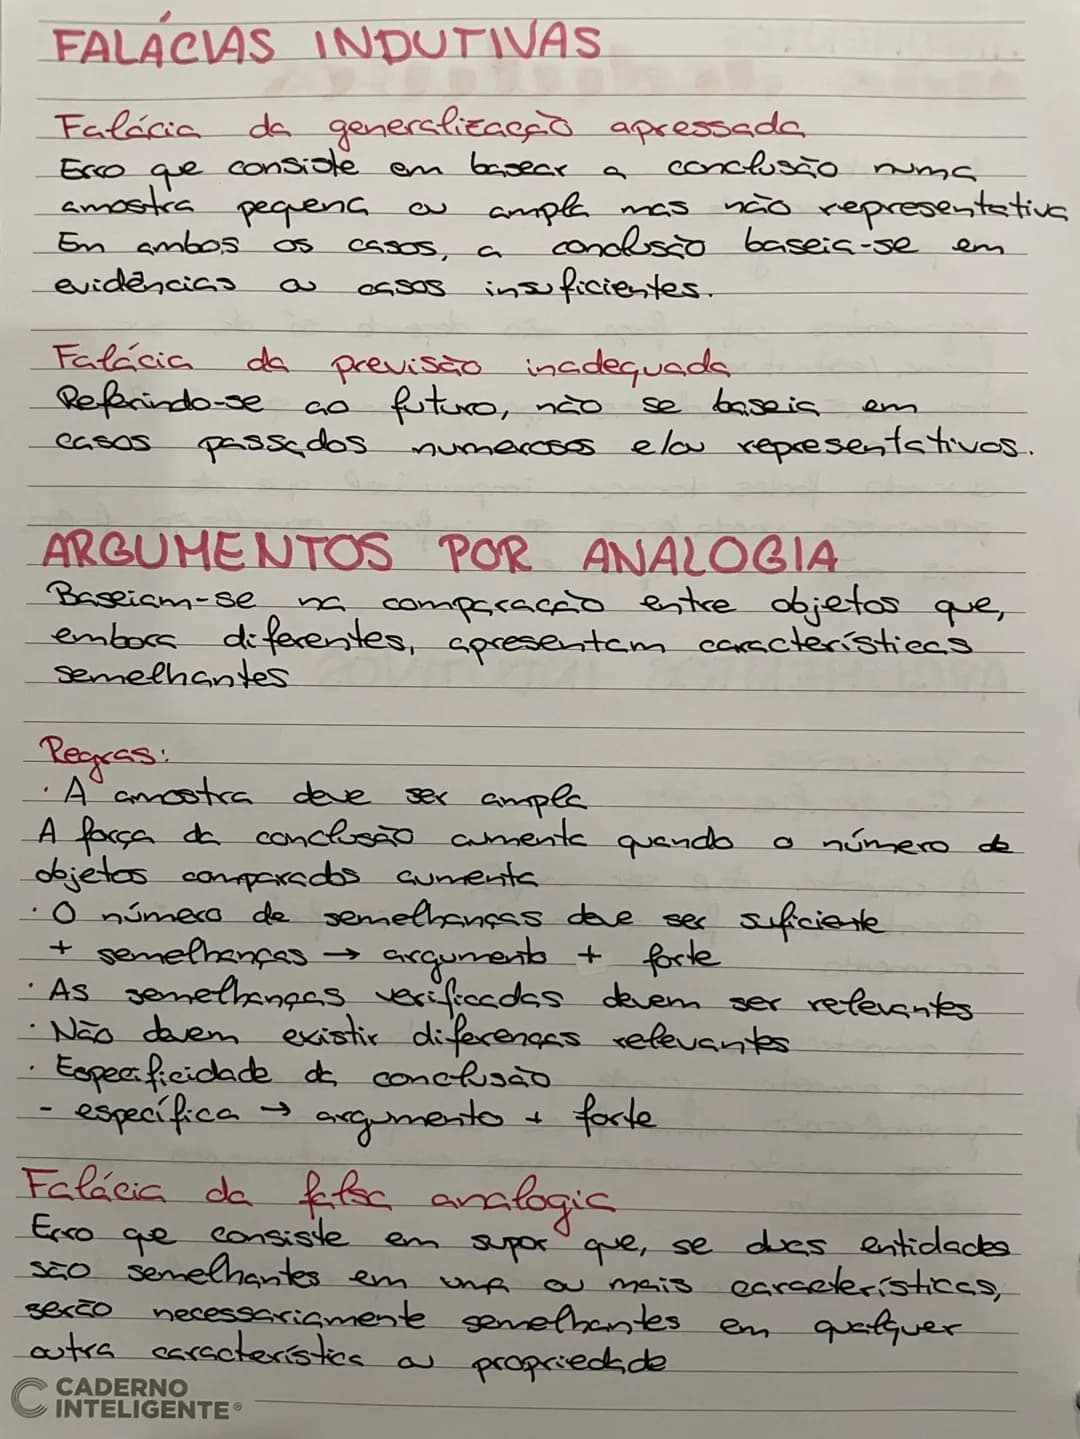 FALÁCIAS INDUTIVAS
Falácia da generalização apressada
Erro que consiste em basear a conclusão numa
amostra pequena ou ampla mas não representativa
Em ambos os casos, a conclusão baseia-se em
evidências ou casos insuficientes.
Falácia da previsão inadequada
Referindo-se ao futuro, não se baseia em
casos passados numerosos e/ou representativos.
ARGUMENTOS POR ANALOGIA
Baseiam-se na comparação entre objetos que,
embora diferentes, apresentam características
semelhantes
Regras:
· A amostra deve ser ampla
A força da conclusão aumenta quando o número de
objetos comparados aumenta
· O número de semelhanças deve ser suficiente
+ semelhanças → argumento + forte
· As semelhanças verificadas devem ser relevantes
· Não devem existir diferenças relevantes
· Especificidade da conclusão
- específica → argumento + forte
Falácia da falsa analogia
Erro que consiste em supor que, se duas entidades
são semelhantes em uma ou mais características,
serão necessariamente semelhantes em qualquer
outra característica ou propriedade
CADERNO
INTELIGENTE®